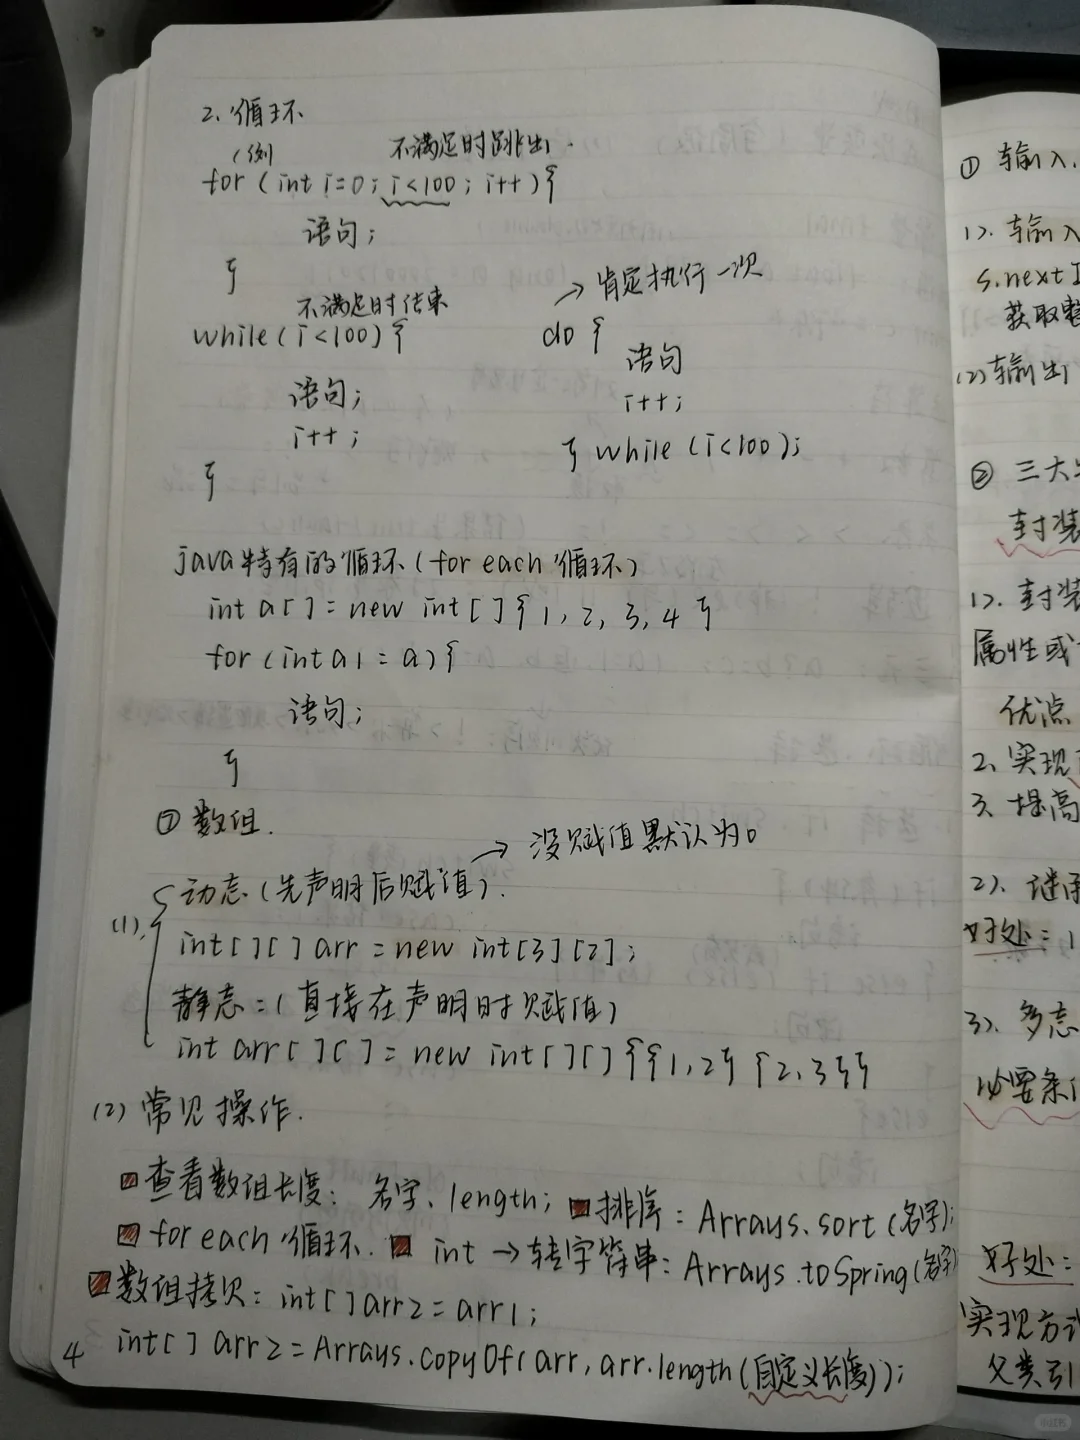 2. 循环
(例 不满足时跳出.
for (int i=0; i<100; i++){
语句;
}
不满足时结束
while(i<100){
语句;
i++;
}
→ 肯定执行一次
do {
语句
i++;
} while (i<100);
java特有的循环(for each 循环)
int a[]=new int[]{1, 2, 3, 4}
for (int a1 = a){
语句;
}
⑦ 数组.
动态(先声明后赋值). → 没赋值默认为0
(1).
int[][] arr = new int[3][2];
静态=(直接在声明时赋值)
int arr[][] = new int[][]{{1,2} {2,3}}
(2) 常见操作.
查看数组长度: 名字. length; 排序: Arrays.sort(名字);
for each 循环. int → 转字符串: Arrays.toSpring(名字
数组拷贝: int[]arr2=arr1;
int[] arr2=Arrays.copyOf(arr, arr.length(自定义长度));
4
① 输入.
1). 输入
s.next
获取整
(2)输出
② 三大
封装
1). 封装
属性或
优点
2、实现
3. 提高
2).
好处: 1
3). 多态
必要条件
好处:
实现方
父类引
小红书